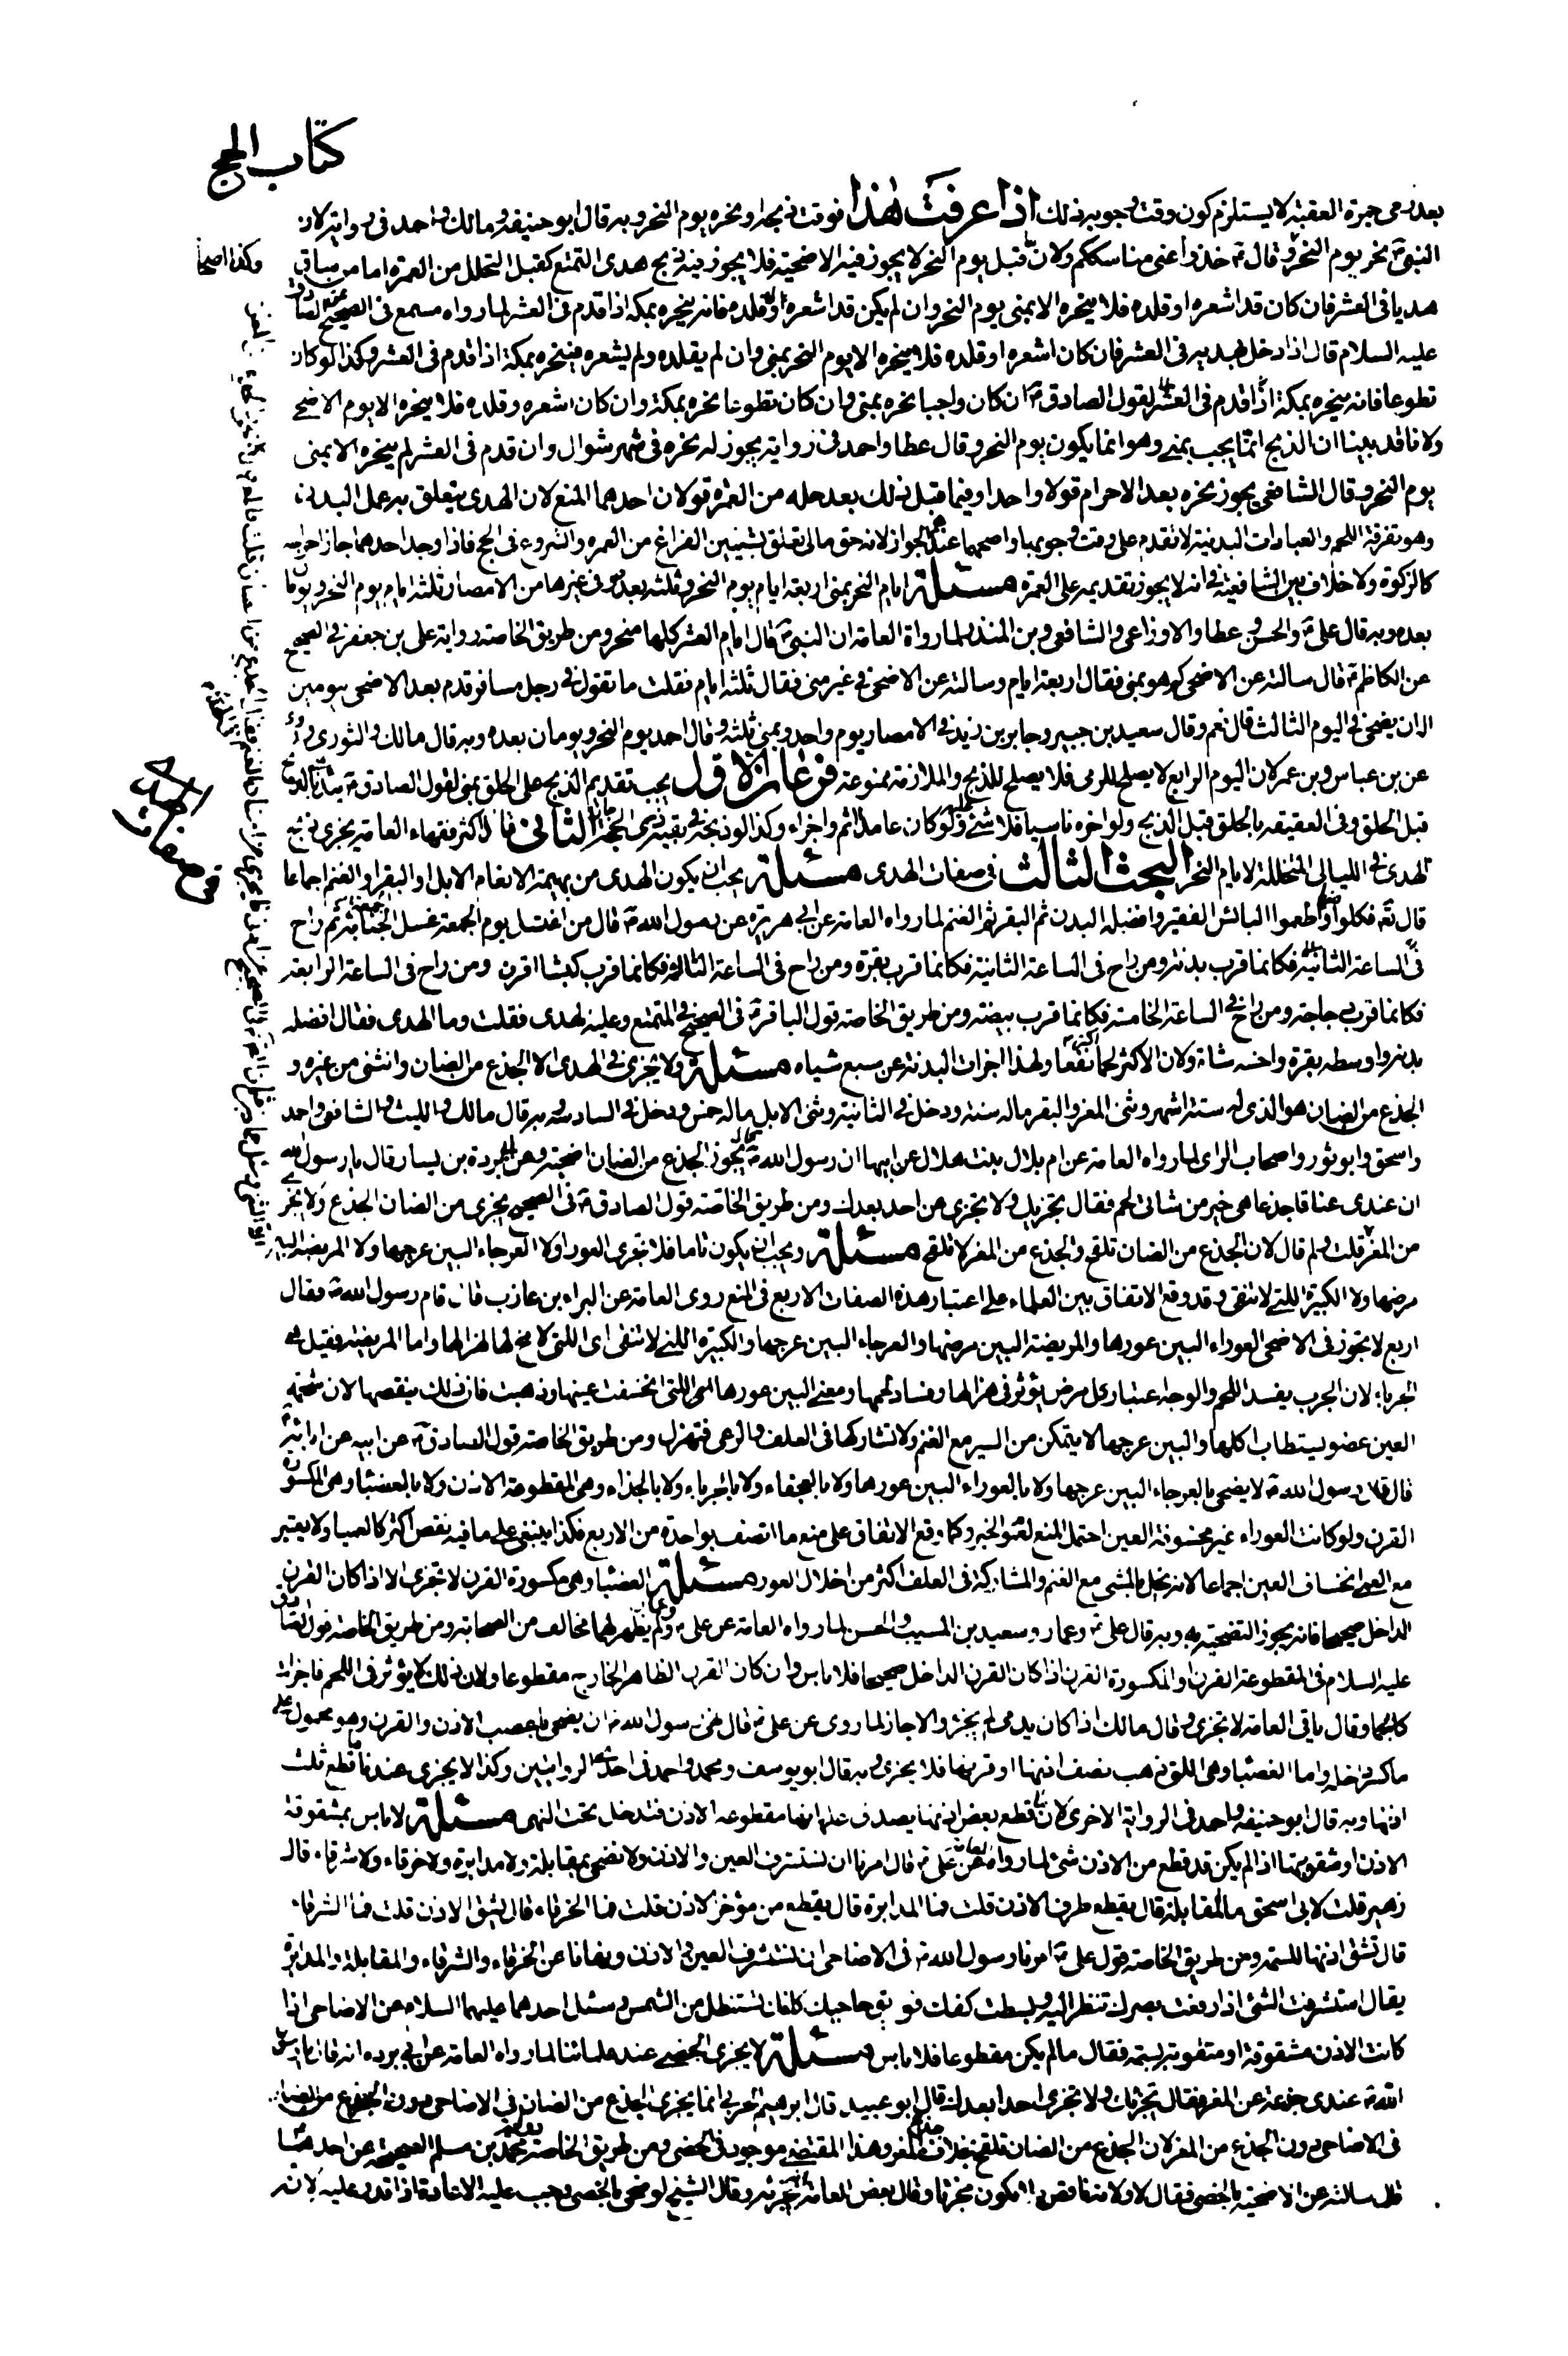 كتاب الحج
بعد رمى جمرة العقبة لا يستلزم كون وقت وجوبه ذلك اذا عرفت هذا فوقت ذبحه او نحره يوم النحر وبه قال ابو حنيفه ومالك واحمد فى رواية لان
النبى ص نحر يوم النحر وقال ص خذوا عنى مناسككم ولان قبل يوم النحر لا يجوز فيه الاضحية فلا يجوز فيه ذبح هدى التمتع كقبل التحلل من العمرة اما من ساق
هديا فى العشر فان كان قد اشعره او قلده فلا ينحره الا بمنى يوم النحر وان لم يكن قد اشعره او قلده فانه ينحره بمكة اذا قدم فى العشر لما رواه مسمع فى الصحيح عن الصادق
عليه السلام قال اذا دخل بهديه فى العشر فان كان اشعره او قلده فلا ينحره الا يوم النحر بمنى وان لم يقلده ولم يشعره فينحره بمكة اذا قدم فى العشر وكذا لو كان
تطوعا فانه ينحره بمكة اذا قدم فى العشر لقول الصادق ع ان كان واجبا نحره بمنى وان كان تطوعا نحره بمكة وان كان اشعره وقلده فلا ينحره الا يوم الاضحى
ولانا قد بينا ان الذبح انما يجب بمنى وهو انما يكون يوم النحر وقال عطا واحمد فى رواية يجوز له نحره فى شهر شوال وان قدم فى العشر لم ينحره الا بمنى
يوم النحر وقال الشافعى يجوز نحره بعد الاحرام قولا واحدا وفيما قبل ذلك بعد حله من العمره قولان احدهما المنع لان الهدى يتعلق به عمل البدن
وهو تفرقة اللحم والعبادات البدنية لا تقدم على وقت وجوبها واصحهما عندهم الجواز لانه حق مالى تعلق بشيئين الفراغ من العمره والشروع فى الحج فاذا وجد احدهما جاز اخراجه
كالزكوة ولا خلاف بين الشافعية فى انه لا يجوز تقديمه على العمرة مسئلة ايام النحر بمنى اربعة ايام يوم النحر وثلثه بعده وفى غيرها من الامصار ثلثه ايام يوم النحر ويومان
بعده وبه قال على ع والحسن وعطا والاوزاعى والشافعى وبن المنذر لما رواة العامة ان النبى ص قال ايام العشر كلها منحر ومن طريق الخاصة رواية على بن جعفر فى الصحيح
عن الكاظم ع قال سالته عن الاضحى كم هو بمنى فقال اربعة ايام وسالته عن الاضحى فى غير منى فقال ثلثه ايام فقلت ما تقول فى رجل مسافر قدم بعد الاضحى بيومين
اله ان يضحى فى اليوم الثالث قال نعم وقال سعيد بن جبير وجابر بن زيد فى الامصار يوم واحد وبمنى ثلثه وقال احمد يوم النحر ويومان بعده وبه قال مالك والثورى وروى
عن بن عباس وبن عمر لان اليوم الرابع لا يصلح للرمى فلا يصلح للذبح والملازمة ممنوعة فرعان الاول يجب تقديم الذبح على الحلق بمنى لقول الصادق ع تبدا بالذبح
قبل الحلق وفى العقيقه بالحلق قبل الذبح ولو اخره ناسيا فلا شئ ولو كان عامدا اثم واجزاء وكذا لو ذبحه فى بقية ذى الحجة الثانى قال اكثر فقهاء العامة يجزى ذبح
الهدى فى الليالى المتخللة لايام النحر البحث الثالث فى صفات الهدى مسئلة يجب ان يكون الهدى من بهيمة الانعام الابل او البقر او الغنم اجماعا
قال تعه فكلوا منها واطعموا البائس الفقير وافضله البدن ثم البقر ثم الغنم لما رواه العامة عن ابى هريرة عن رسول الله ص قال من اغتسل يوم الجمعة غسل الجنابة ثم راح
فى الساعة الثانية فكانما قرب بدنة ومن راح فى الساعة الثانية فكانما قرب بقرة ومن راح فى الساعة الثالثة فكانما قرب كبشا اقرن ومن راح فى الساعة الرابعة
فكانما قرب دجاجة ومن راح فى الساعة الخامسة فكانما قرب بيضة ومن طريق الخاصة قول الباقر ع فى الصحيح فى المتمتع وعليه الهدى فقلت وما الهدى فقال افضله
بدنة واوسطه بقرة واخسه شاة ولان الاكثر لحما اكثر نفعا ولهذا اجزات البدنة عن سبع شياه مسئلة ولا يجزى فى الهدى الا الجذع من الضان والثنى من غيره و
الجذع من الضان هو الذى له ستة اشهر وثنى المعز والبقر ماله سنة ودخل فى الثانية وثنى الابل ماله خمس ودخل فى السادسة وبه قال مالك والليث والشافعى واحمد
واسحق وابو ثور واصحاب الراى لما رواه العامة عن ام بلال بنت هلال عن ابيها ان رسول الله ص قال يجوز الجذع من الضان اضحية وعن ابى بردة بن نيسار قال يا رسول الله
ان عندى عناقا جذعا هى خير من شاتى لحم فقال تجزيك ولا تجزى عن احد بعدك ومن طريق الخاصة قول الصادق ع فى الصحيح يجزى من الضان الجذع ولا يجزى
من المعز قلت ولم قال لان الجذع من الضان تلقح والجذع من المعز لا تلقح مسئلة ويجب ان يكون تاما فلا تجزى العورا ولا العرجاء البين عرجها ولا المريضة البين
مرضها ولا الكبيرة اللتى لا تنقى وقد وقع الاتفاق بين العلماء على اعتبار هذه الصفات الاربع فى المنع روى العامة عن البراء بن عازب قال قام رسول الله ص فقال
اربع لا تجوز فى الاضحى العوراء البين عورها والمريضة البين مرضها والعرجاء البين عرجها والكبيرة اللتى لا تنقى اى اللتى لا مخ لها لهزالها واما المريضة فقيل هى
الجرباء لان الجرب يفسد اللحم والوجه اعتبار كل مرض يؤثر فى هزالها وفساد لحمها ومعنى البين عورها اى اللتى انخسفت عينها وذهبت فان ذلك ينقصها لان شحمة
العين عضو يستطاب اكلها والبين عرجها لا يتمكن من السير مع الغنم ولا تشاركها فى العلف والرعى فتهزل ومن طريق الخاصة قول الصادق ع عن ابيه عن ابائه ع
قال قال رسول الله ص لا يضحى بالعرجاء البين عرجها ولا بالعوراء البين عورها ولا بالعجفاء ولا بالجرباء ولا بالجذاء وهى المقطوعة الاذن ولا بالعضباء وهى المكسورة
القرن ولو كانت العوراء غير مخسوفة العين احتمل المنع لعموم الخبر وكما وقع الاتفاق على منع ما اتصف بواحدة من الاربع فكذا ينبغى على ما فيه نقص اكثر كالعميا ولا يعتبر
مع العمى انخساف العين اجماعا لانه يخل بالمشى مع الغنم والمشاركة فى العلف اكثر من اخلال العور مسئلة العضباء وهى مكسورة القرن لا تجزى الا اذا كان القرن
الداخل صحيحا فانه يجوز التضحية به وبه قال على ع وعمار وسعيد بن المسيب والحسن لما رواه العامة عن على ع وعمار ولم يظهر لهما مخالف من الصحابة ومن طريق الخاصة قول الصادق
عليه السلام فى المقطوعة القرن او المكسورة القرن اذا كان القرن الداخل صحيحا فلا باس وان كان القرن الظاهر الخارج مقطوعا ولان ذلك لا يؤثر فى اللحم فاجزات
كالجما وقال باقى العامة لا تجزى وقال مالك اذا كان يدمى لم يجز والا جاز لما روى عن على ع قال نهى رسول الله ص ان يضحى باعضب الاذن والقرن وهو محمول على
ما كسر داخله واما العضباء وهى اللتى ذهب نصف اذنها او قرنها فلا يجزى وبه قال ابو يوسف ومحمد واحمد فى احدى الروايتين وكذا لا يجزى عندنا قطع ثلث
اذنها وبه قال ابو حنيفه واحمد فى الرواية الاخرى لان قطع بعض اذنها يصدق عليها انها مقطوعه الاذن فتدخل تحت النهى مسئلة لا باس بمشقوقة
الاذن او مثقوبتها اذا لم يكن قد قطع من الاذن شئ لما رواه العامة عن على ع قال امرنا ان نستشرف العين والاذن ولا نضحى بمقابلة ولا مدابرة ولا خرقاء ولا شرقاء قال
زهير قلت لابى اسحق ما المقابلة قال يقطع طرف الاذن قلت فما المدابرة قال يقطع من مؤخر الاذن قلت فما الخرقاء قال يشق الاذن قلت فما الشرقاء
قال تشق اذنها للسمه ومن طريق الخاصة قول على ع امرنا رسول الله ص فى الاضاحى ان نستشرف العين والاذن ونهانا عن الخرقاء والشرقاء والمقابلة والمدابرة
يقال استشرفت الشئ اذا رفعت بصرك تنظر اليه وبسطت كفك فوق حاجبك كانك تستظل من الشمس وسئل احدهما عليهما السلام عن الاضاحى اذا
كانت الاذن مشقوقة او مثقوبة بسمة فقال ما لم يكن مقطوعا فلا باس مسئلة لا يجزى الخصى عند علمائنا لما رواه العامة عن ابى برده انه قال يا رسول
الله ص عندى جذعة من المعز فقال تجزئك ولا تجزى احدا بعدك قال ابو عبيد قال ابرهيم الحربى انما يجزى الجذع من الضان فى الاضاحى دون الجذع من المعز
فى الاضاحى دون الجذع من المعز لان الجذع من الضان تلقح بخلاف المعز وهذا المقتضى موجود فى الخصى ومن طريق الخاصة رواية محمد بن مسلم الصحيحة عن احدهما
قال سالته عن الاضحية بالخصى فقال لا ولانه ناقص فلا يكون مجزيا وقال بعض العامة انه يجزى وقال الشيخ لو ضحى بالخصى وجب عليه الاعادة اذا قدر عليه لانه
وكذا اصحا
فى صفات الهدى